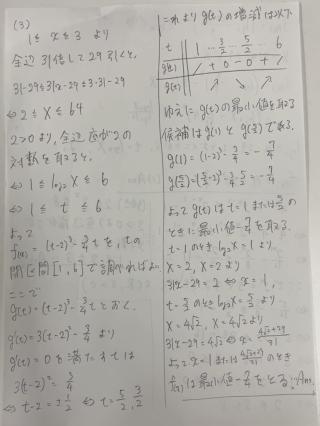 (3)
1 ≦ x ≦ 3 より
全辺 31倍して29引くと、
31-29≦31x-29≦3·31-29
⇔ 2 ≦ X ≦ 64
2>0より、全辺底が2の
対数を取ると、
⇔ 1 ≦ log₂X ≦ 6
⇔ 1 ≦ t ≦ 6
よって
f(x) = (t-2)³-¾tを、tの
閉区間[1,6]で調べればよい
ここで
g(t)=(t-2)³-¾tとおく。
g'(t)=3(t-2)²-¾より
g'(t)=0を満たすtは
3(t-2)²=¾
⇔ t-2=±½ ⇔ t=5/2, 3/2
これよりg(t)の増減は以下
t 1 … 3/2 … 5/2 … 6
g'(t) / + 0 - 0 + /
g(t) ↗ ↘ ↗
ゆえに g(t)の最小値を取る
候補はg(1)とg(5/2)である。
g(1)=(1-2)³-¾=-7/4
g(5/2)=(5/2-2)³-¾·5/2=-7/4
よってg(t)はt=1またはt=5/2の
ときに最小値-7/4を取る。
t=1のときlog₂X=1より
X=2, X=2より
31x-29=2 ⇔ x=1,
t=5/2のときlog₂X=5/2より
X=4√2, X=4√2より
31x-29=4√2 ⇔ x=(4√2+29)/31
よってx=1または(4√2+29)/31のとき
f(x)は最小値-7/4をとる…Ans.